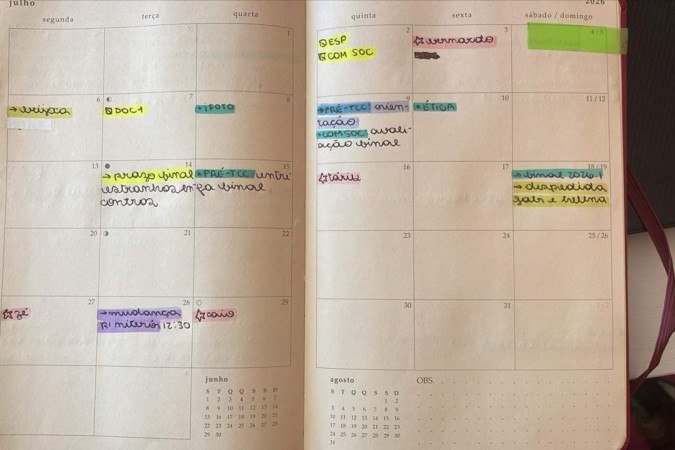 julho
2026
segunda
terça
quarta
quinta
sexta
sábado / domingo
1
2
ESP
COM SOC
3
bernardo
4/5
6
7
DOC 1
8
FOTO
9
PRÉ-TCC: orien-
tação
COM SOC avali-
ação final
10
ÉTICA
11 / 12
13
14
→ prazo final
entre
estranhos
contros
15
PRÉ-TCC
pa final
16
17
18/19
→ final 2026.1
→ despedida
gabi e helena
20
21
22
23
24
25/26
27
zé
28
→ mudança
RJ niterói 12:30
29
caio
30
31
junho
S T Q Q S S D
1 2 3 4 5 6 7
8 9 10 11 12 13 14
15 16 17 18 19 20 21
22 23 24 25 26 27 28
29 30
agosto
S T Q Q S S D
1 2
3 4 5 6 7 8 9
10 11 12 13 14 15 16
17 18 19 20 21 22 23
24 25 26 27 28 29 30
31
OBS.